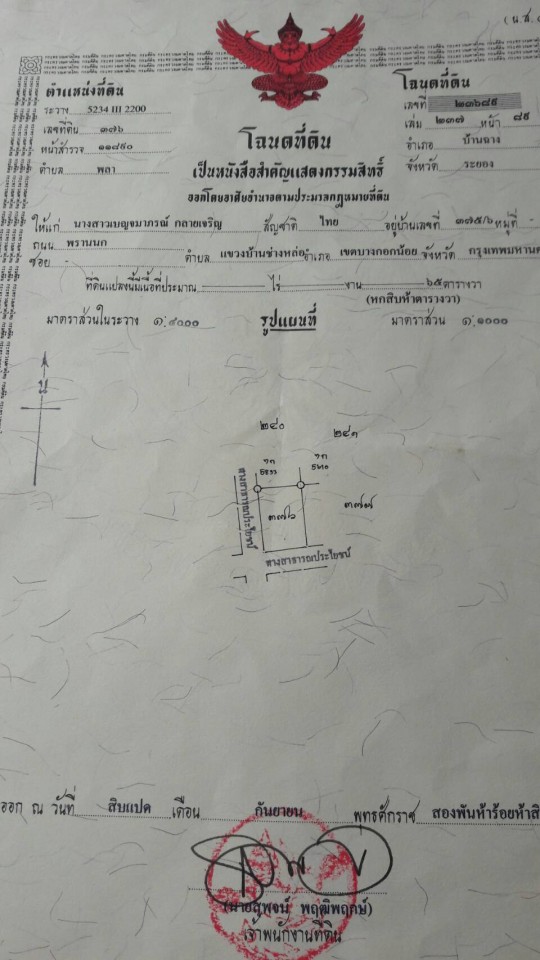 (น.ส.
ตำแหน่งที่ดิน
ระวาง 5234 III 2200
เลขที่ดิน ๓๗๖
หน้าสำรวจ ๑๑๘๙๐
ตำบล พลา
โฉนดที่ดิน
เลขที่ ๒๓๖๘๙
เล่ม ๒๓๗ หน้า ๘๙
อำเภอ บ้านฉาง
จังหวัด ระยอง
โฉนดที่ดิน
เป็นหนังสือสำคัญแสดงกรรมสิทธิ์
ออกโดยอาศัยอำนาจตามประมวลกฎหมายที่ดิน
ให้แก่ นางสาวเบญจมาภรณ์ กลายเจริญ สัญชาติ ไทย อยู่บ้านเลขที่ ๓๗๕/๖ หมู่ที่ -
ถนน พรานนก
ซอย - ตำบล แขวงบ้านช่างหล่อ อำเภอ เขตบางกอกน้อย จังหวัด กรุงเทพมหานค
ที่ดินแปลงนี้มีเนื้อที่ประมาณ ไร่ งาน ๖๕ ตารางวา
(หกสิบห้าตารางวา)
มาตราส่วนในระวาง ๑:๔๐๐๐ รูปแผนที่ มาตราส่วน ๑:๑๐๐๐
น
๒๔๐
๒๔๑
๓๗๖
๓๗๗
ทางสาธารณประโยชน์
ทางสาธารณประโยชน์
ออก ณ วันที่ สิบแปด เดือน กันยายน พุทธศักราช สองพันห้าร้อยห้าสิ
(นายสุพจน์ พฤฒิพฤกษ์)
เจ้าพนักงานที่ดิน